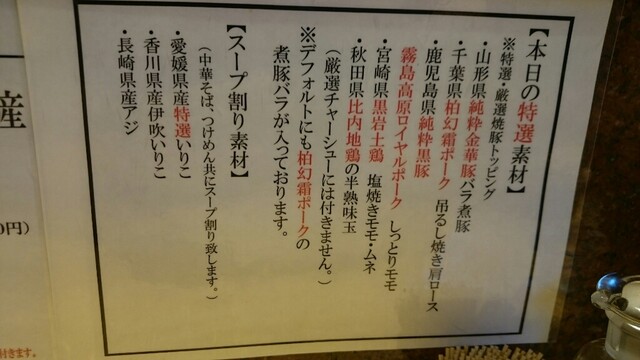 【本日の特選素材】
※特選・厳選焼豚トッピング
・山形県純粋金華豚バラ煮豚
・千葉県柏幻霜ポーク 吊るし焼き肩ロース
・鹿児島県純粋黒豚
霧島高原ロイヤルポーク しっとりモモ
・宮崎県黒岩土鶏 塩焼きモモ・ムネ
・秋田県比内地鶏の半熟味玉
(厳選チャーシューには付きません。)
※デフォルトにも柏幻霜ポークの
煮豚バラが入っております。
【スープ割り素材】
(中華そば、つけめん共にスープ割り致します。)
・愛媛県産特選いりこ
・香川県産伊吹いりこ
・長崎県産アジ
産
0円)
付きます。